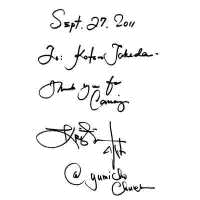 Sept. 27. 2011
To: Kotaro Takeda.
Thank you for
Coming
@ yumicho
Church